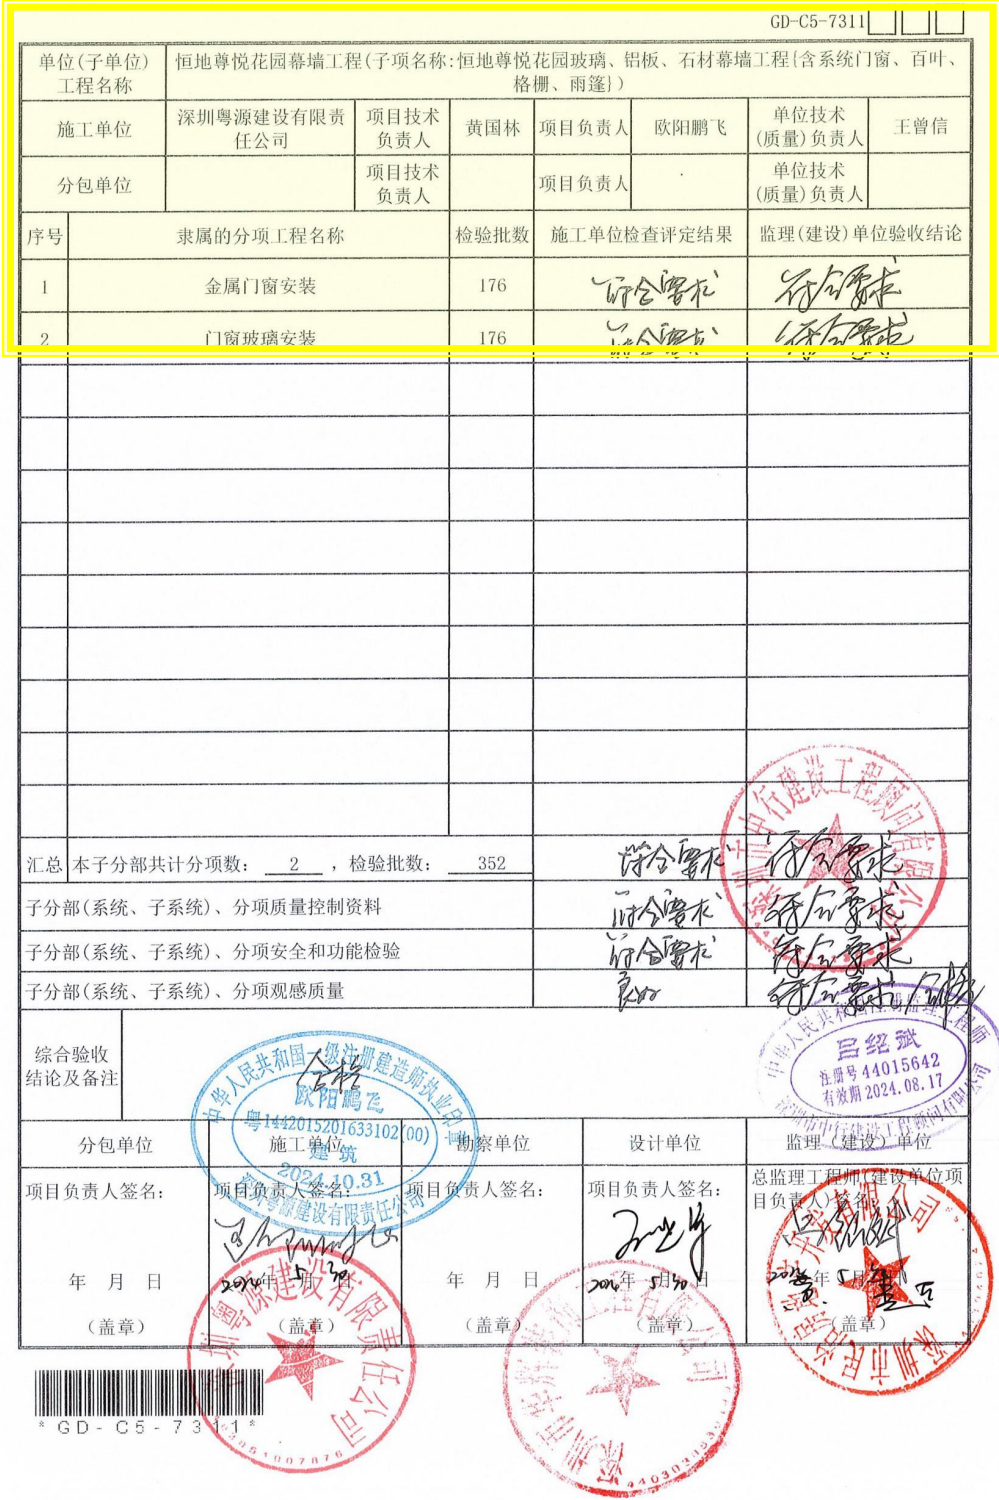 GD-C5-7311
单位(子单位)
工程名称
恒地尊悦花园幕墙工程(子项名称:恒地尊悦花园玻璃、铝板、石材幕墙工程{含系统门窗、百叶、
格栅、雨篷})
施工单位
深圳粤源建设有限责
任公司
项目技术
负责人
黄国林
项目负责人
欧阳鹏飞
单位技术
(质量)负责人
王曾信
分包单位
项目技术
负责人
项目负责人
单位技术
(质量)负责人
序号 隶属的分项工程名称 检验批数 施工单位检查评定结果 监理(建设)单位验收结论
1 金属门窗安装 176 符合要求 符合要求
2 门窗玻璃安装 176 符合要求 符合要求
汇总 本子分部共计分项数: 2 ,检验批数: 352 符合要求 符合要求
子分部(系统、子系统)、分项质量控制资料 符合要求 符合要求
子分部(系统、子系统)、分项安全和功能检验 符合要求 符合要求
子分部(系统、子系统)、分项观感质量 良好 符合要求,合格
综合验收
结论及备注
合格
中华人民共和国一级注册建造师执业印章
欧阳鹏飞
粤1442015201633102(00)
建筑
2024.10.31
深圳粤源建设有限责任公司
中华人民共和国注册监理工程师
吕绍斌
注册号 44015642
有效期 2024.08.17
深圳市中行建设工程顾问有限公司
深圳市中行建设工程顾问有限公司
分包单位 施工单位 勘察单位 设计单位 监理(建设)单位
项目负责人签名: 项目负责人签名: 项目负责人签名: 项目负责人签名:
总监理工程师(建设单位项
目负责人)签名:
年 月 日 2024年 5月 30日 年 月 日 2024年 5月30日 年 5月 日
(盖章) (盖章) (盖章) (盖章) (盖章)
深圳粤源建设有限责任公司
*GD-C5-7311*